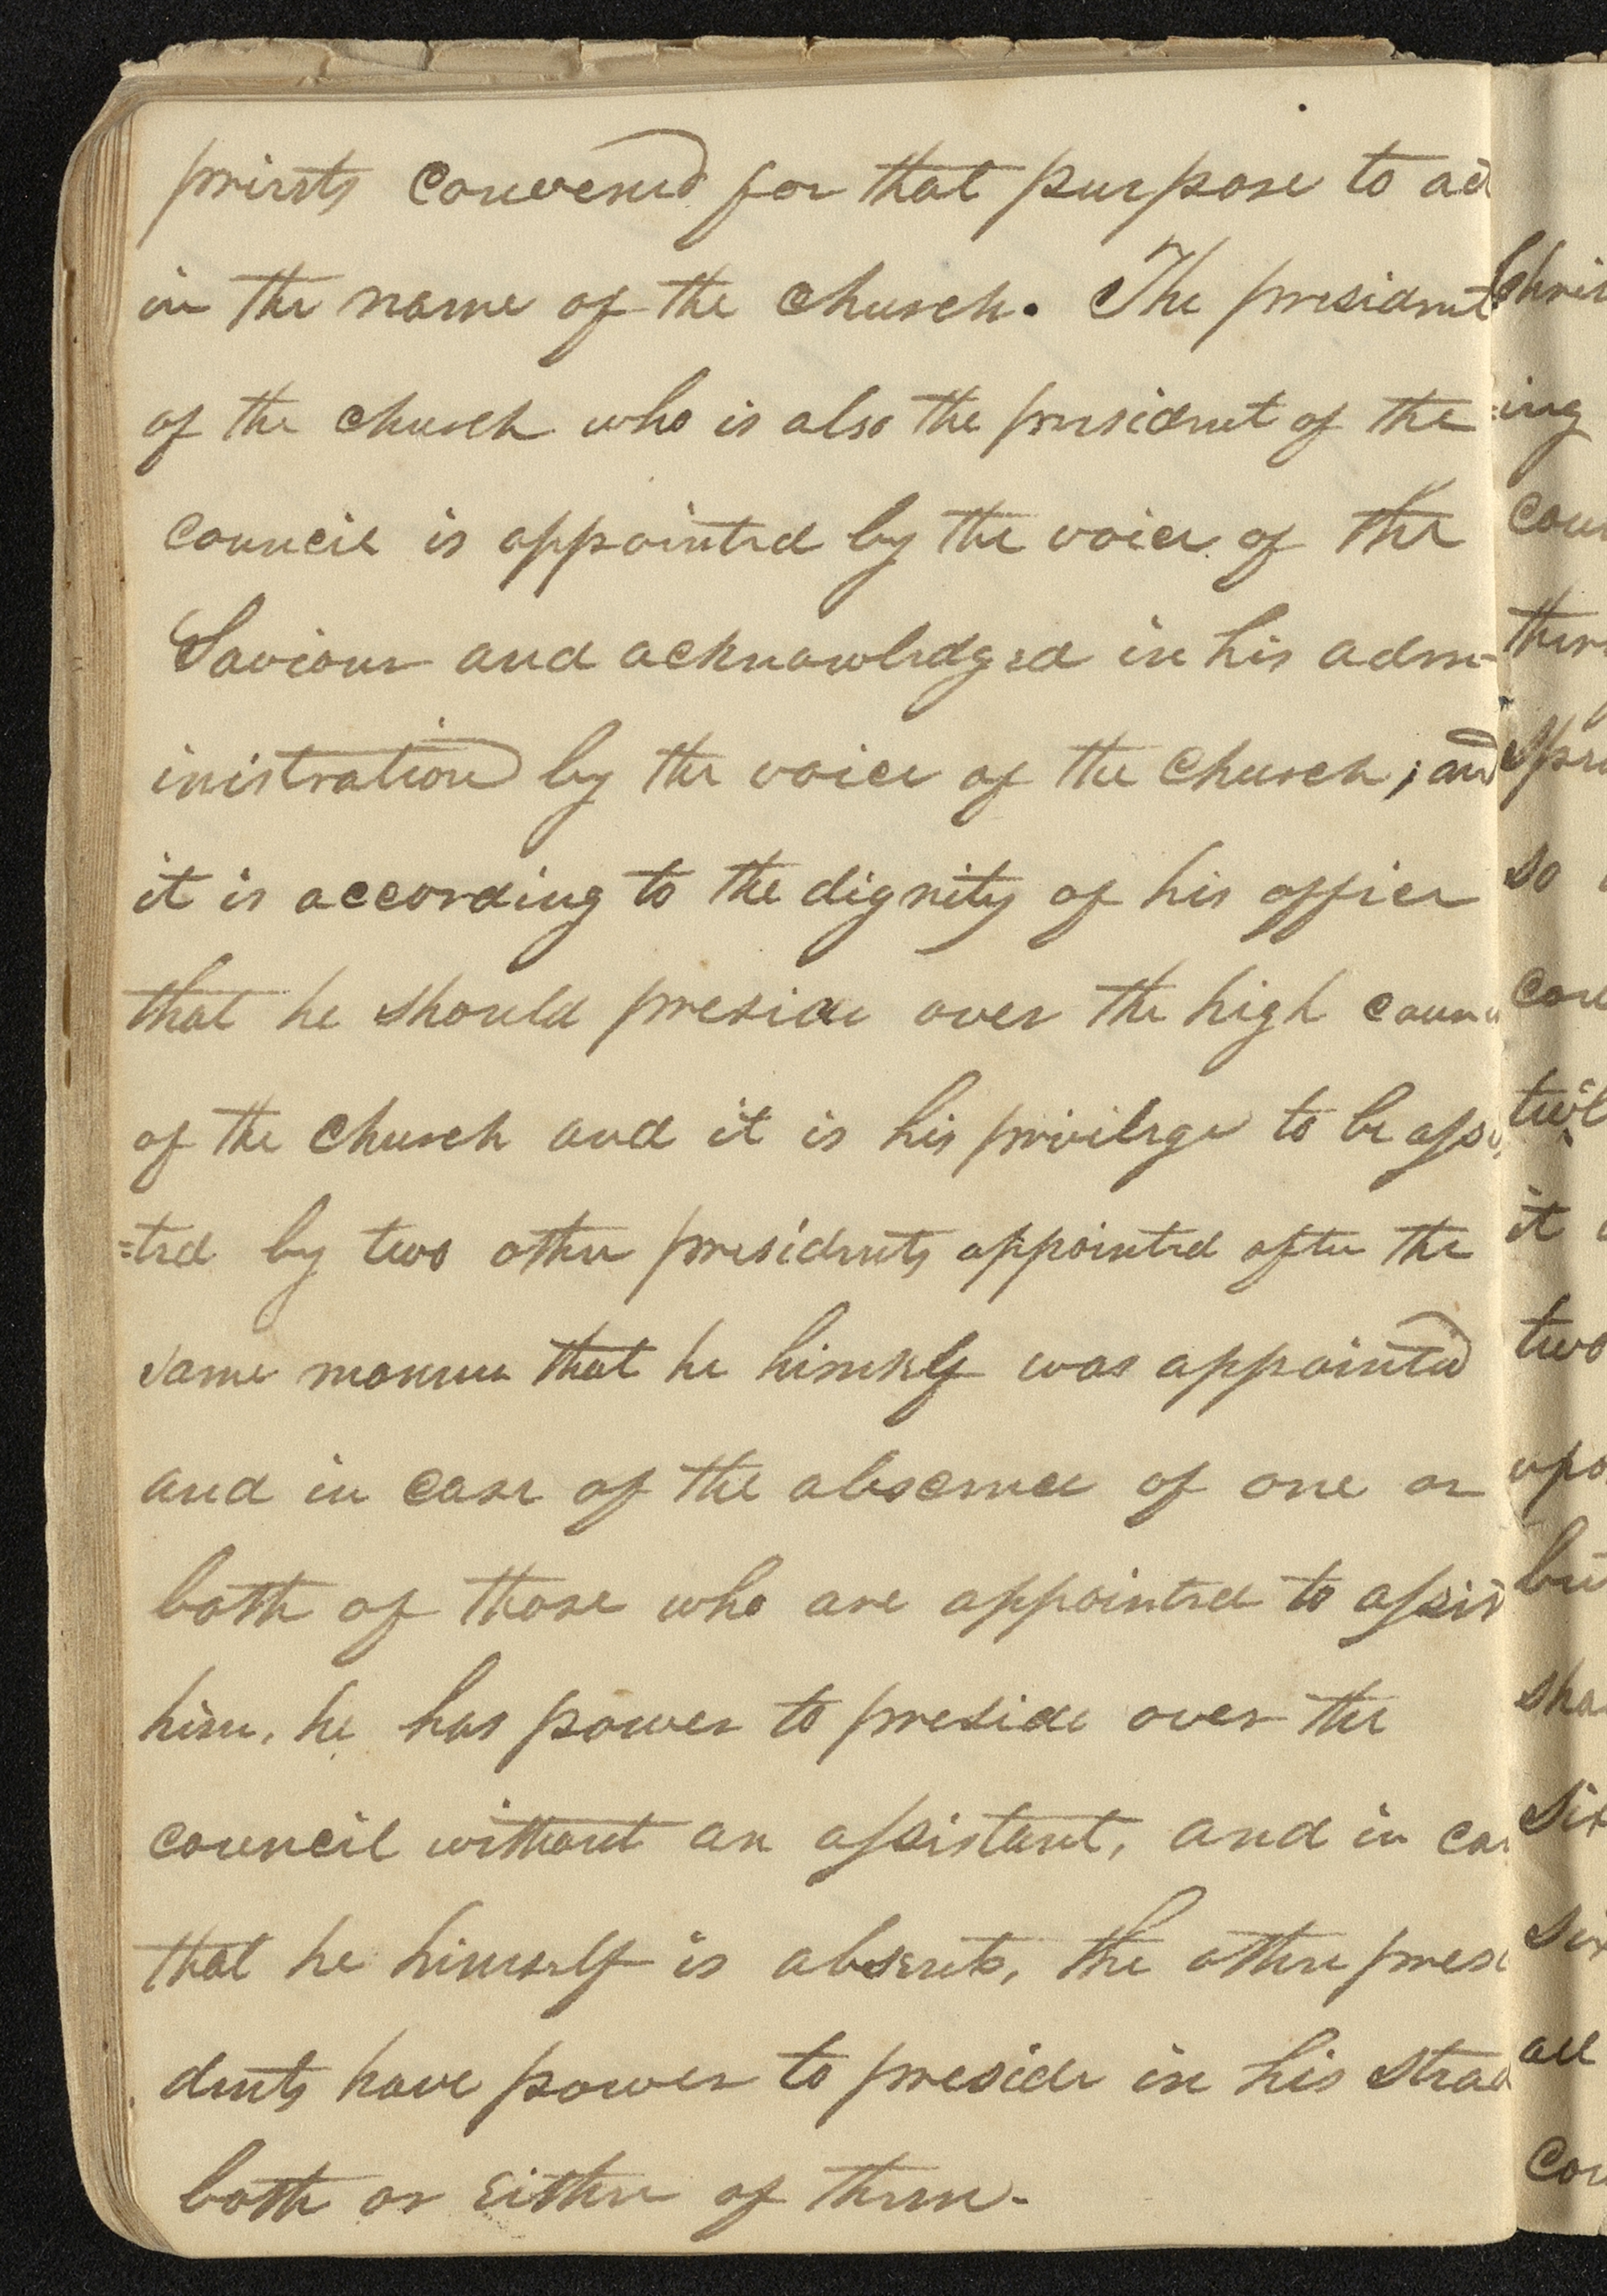 priests convened for that purpose to ac
in the name of the church. The president
of the church who is also the president of the
council is appointed by the voice of the
Saviour and acknowledged in his adm-
inistration by the voice of the church; and
it is according to the dignity of his office
that he should preside over the high counc
of the church and it is his privilege to be assis
=ted by two other presidents appointed after the
same manner that he himself was appointed
and in case of the abscence of one or
both of those who are appointed to assist
him, he has power to preside over the
council without an assistant, and in cas
that he himself is absent, the other presi
dents have power to preside in his stead
both or either of them-
Chris
=ing
coun
ther
spe
so
coun
twel
it
two
upo
but
sha
six
six
all
cou